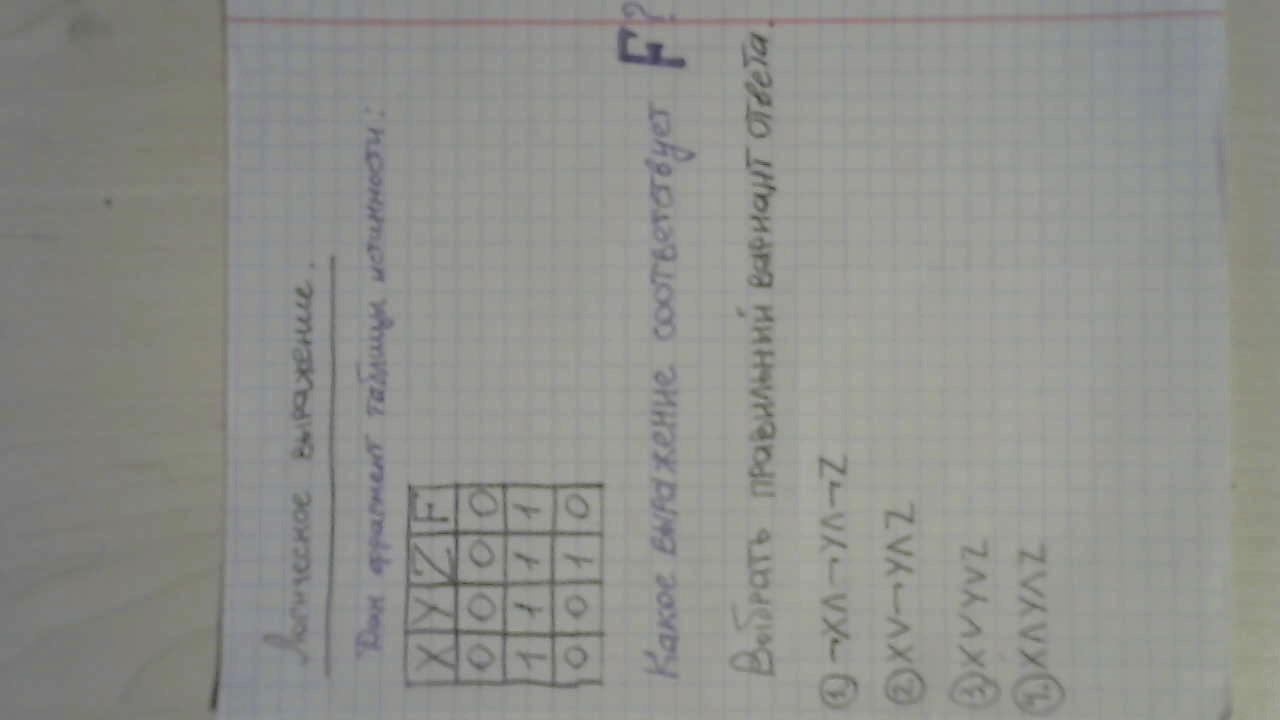 Логическое выражение.
Дан фрагмент таблицы истинности:
X Y Z F
0 0 0 0
1 1 1 1
0 0 1 0
Какое выражение соответствует F?
Выбрать правильний вариант ответа.
1) ¬X∧¬Y∧¬Z
2) X∨¬Y∧Z
3) X∨Y∨Z
4) X∧Y∧Z